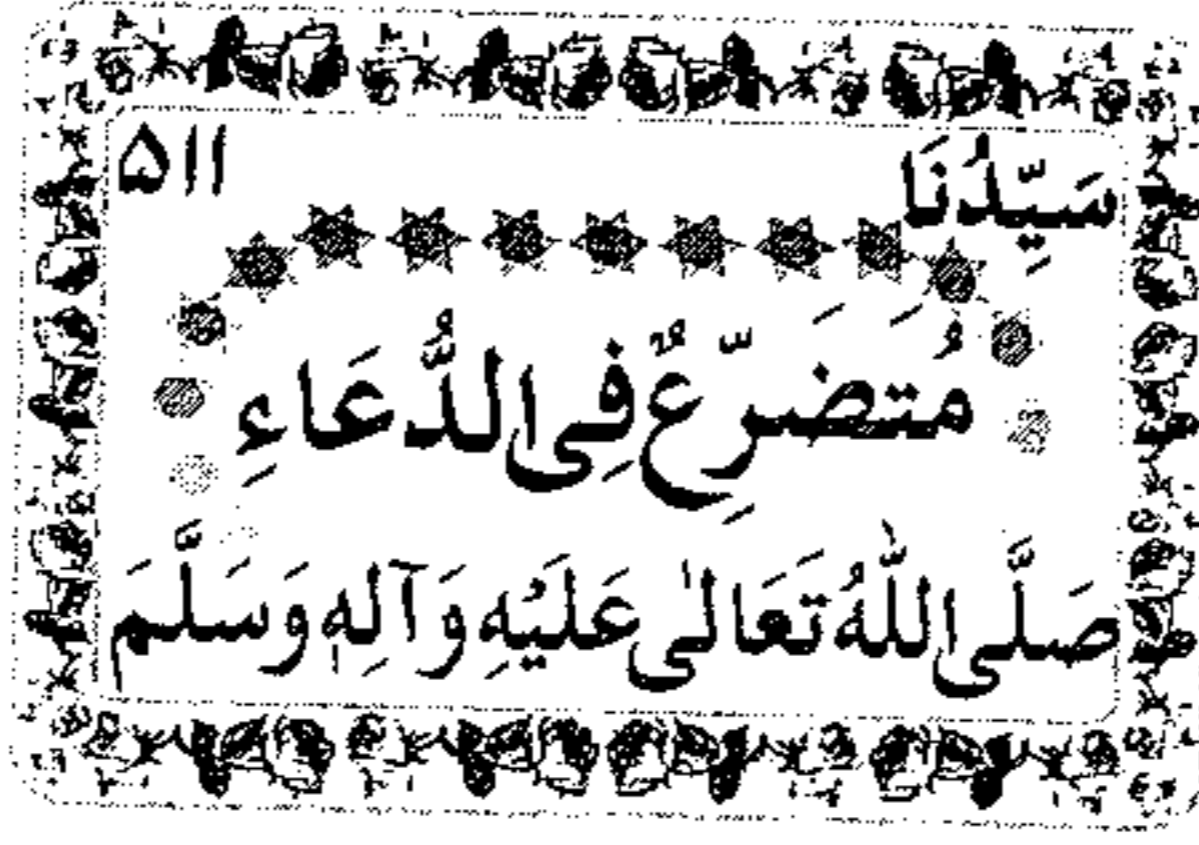 سَيِّدُنَا ۵۱۱
مُتَضَرِّعٌ فِى الدُّعَاءِ
صَلَّى اللّٰهُ تَعَالٰى عَلَيْهِ وَآلِهٖ وَسَلَّمَ